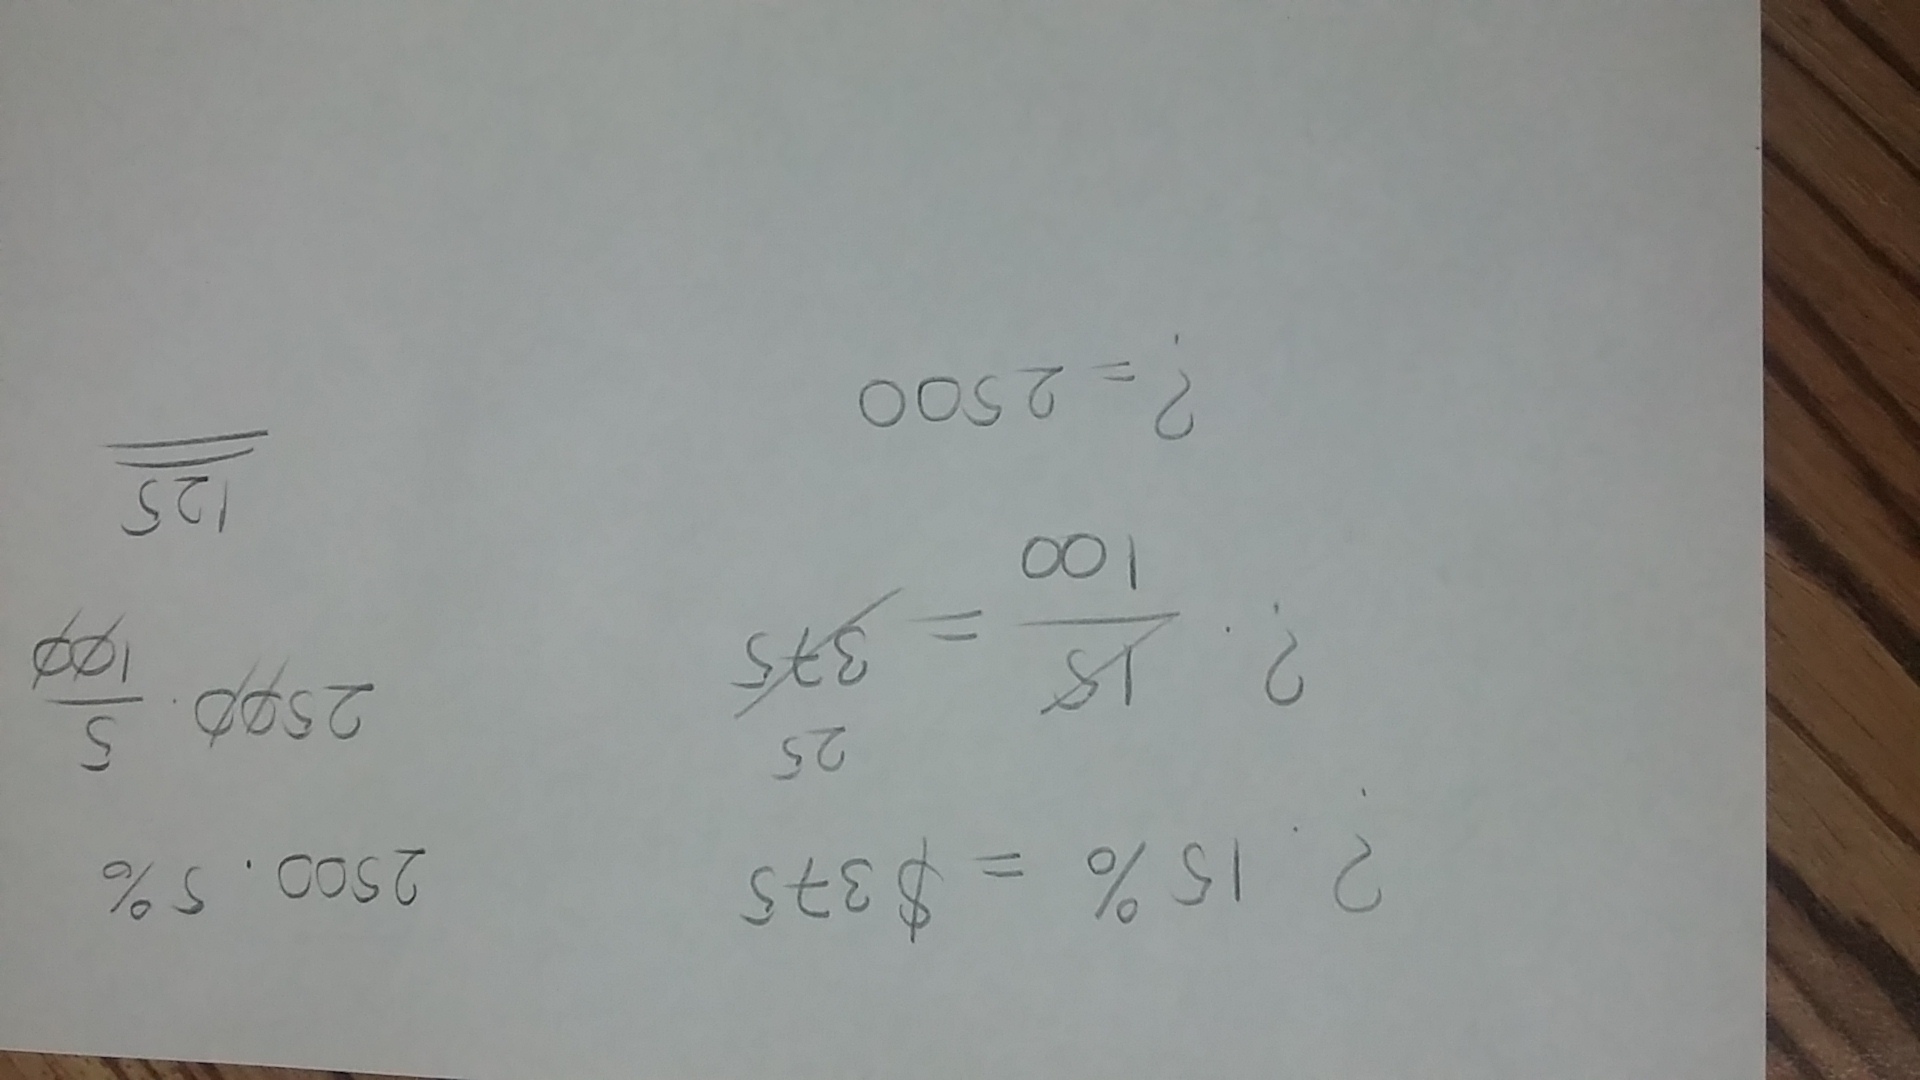 ? · 15% = $375
25
? · 15/100 = 375
? = 2500
2500 · 5%
2500 · 5/100
125